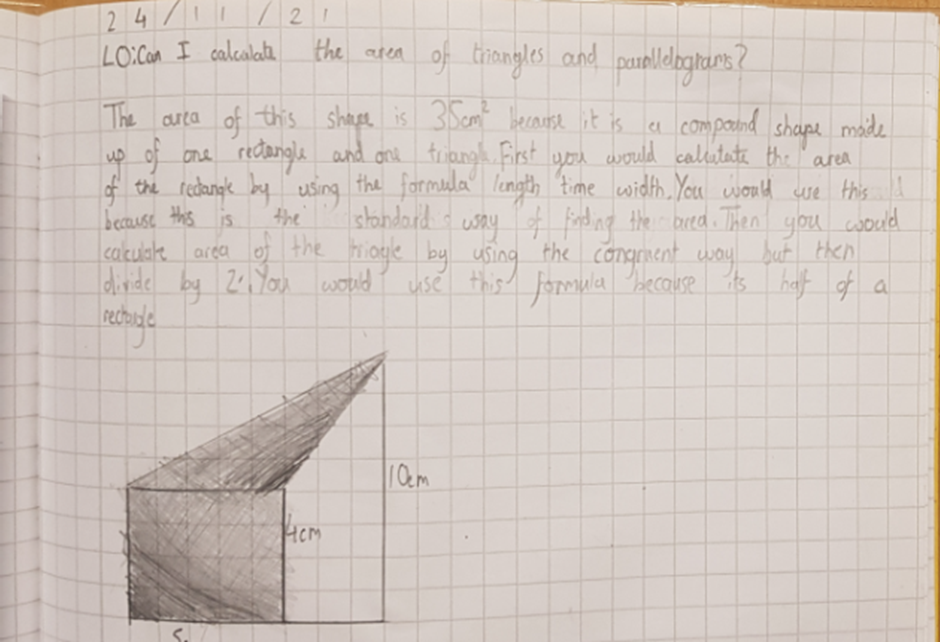 24/11/21
LO:Can I calculate the area of triangles and parallelograms?
The area of this shape is 35cm² because it is a compound shape made
up of one rectangle and one triangle. First you would calculate the area
of the rectangle by using the formula length time width. You would use this
because this is the standard way of finding the area. Then you would
calculate area of the triagle by using the congruent way but then
divide by 2. You would use this formula because its half of a
rectangle
10cm
4cm
5